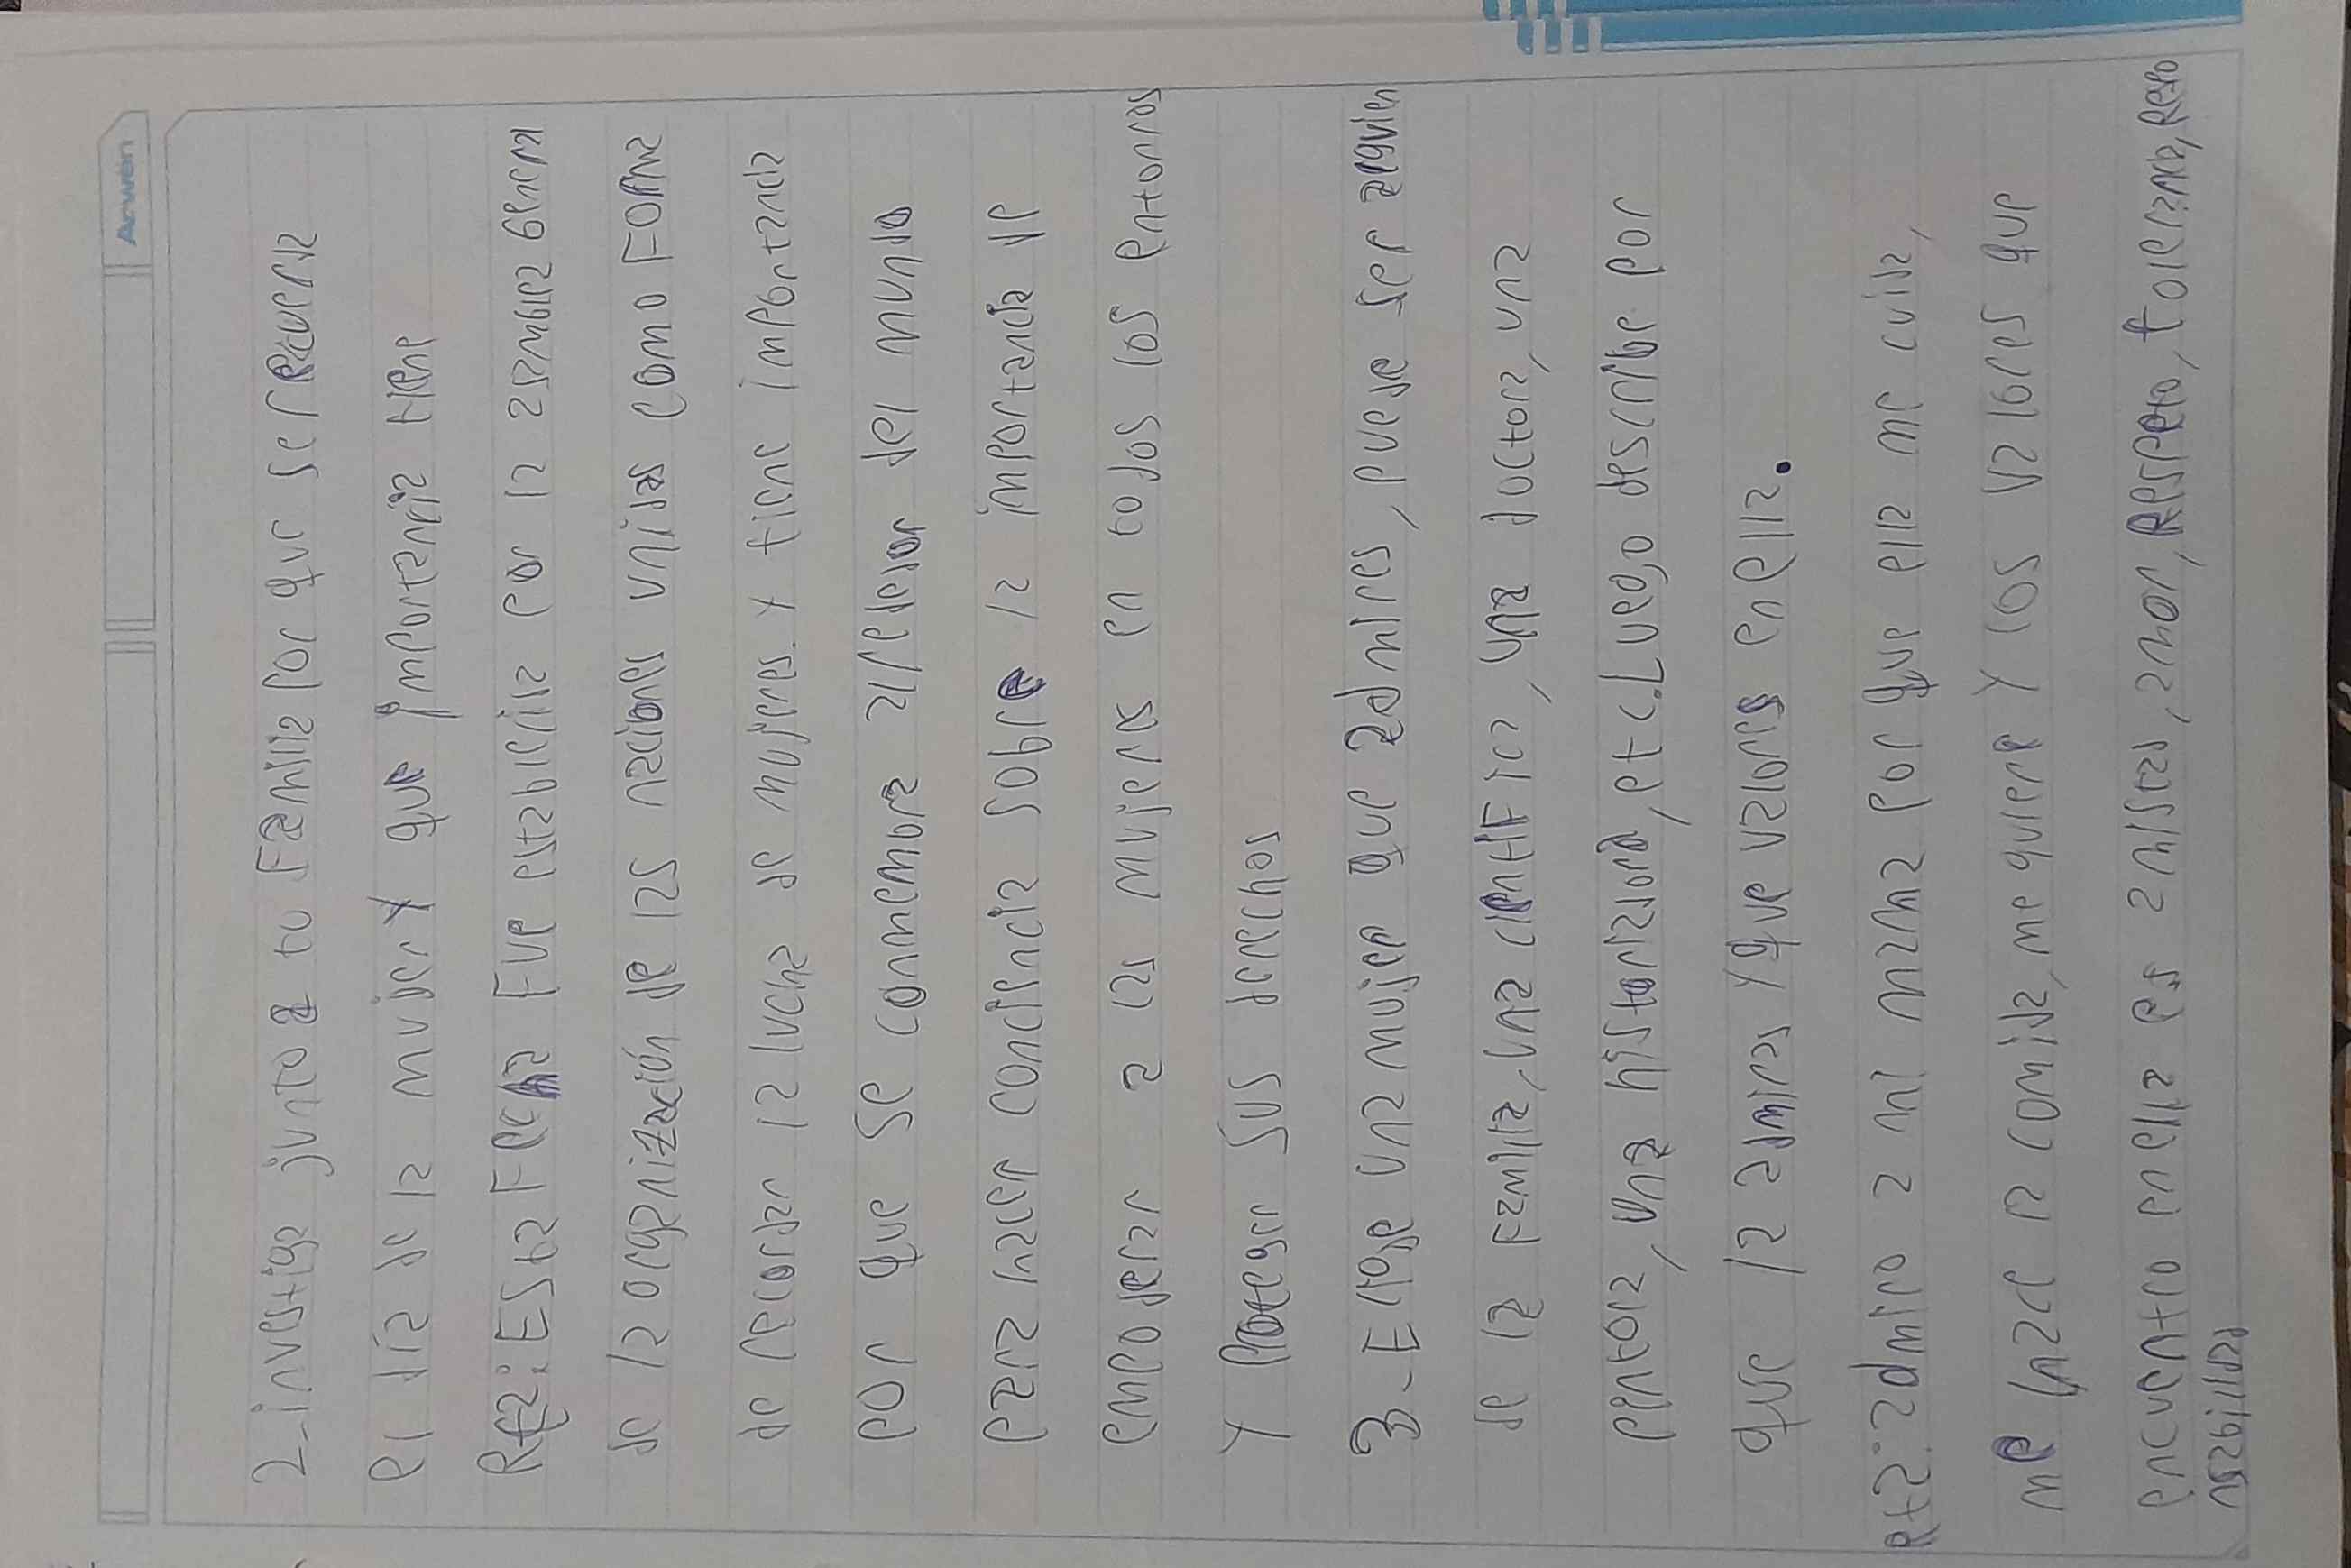 Arwen
2-investiga junto a tu Familia por que se recuerda
el dia de la mujer y que importancia tiene
Rta: Esta Fecha Fue establecida por la asamblea General
de la organización de las naciones unidas como Forma
de recordar la lucha de mujeres. y tiene importancia
por que se conmemora alrededor del mundo
para hacer conciencia sobre la importancia de
empoderar a las mujeres en todos los entornos
y Proteger sus derechos
3-Elige una mujer que admires, puede ser alguien
de la Familia, una cientifica, una doctora, una
pintora, una historiadora, etc. Luego describe por
que la admiras y que valores en ella.
Rta: admiro a mi mama por que ella me cuida,
me hace la comida, me quiere y los valores que
encuentro en ella es amistad, amor, Respeto, tolerancia, Respo
nsabilidad